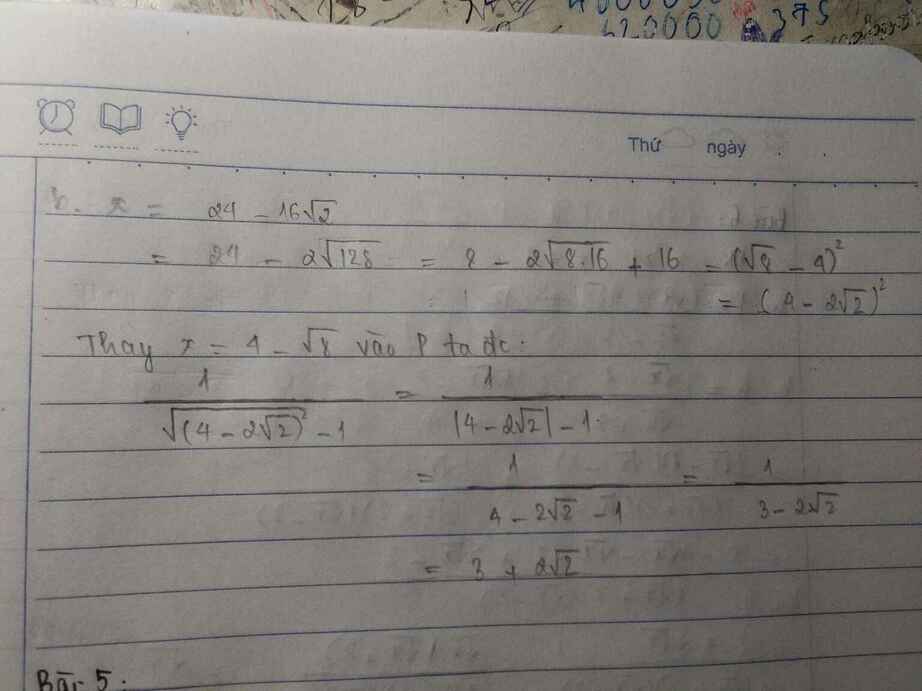 4000000
620000 375
Thứ ngày
b. x = 24 - 16√2
= 24 - 2√128 = 8 - 2√8.16 + 16 = (√8 - 4)²
= (4 - 2√2)²
Thay x = 4 - √8 vào P ta đc:
1/(√(4 - 2√2)² - 1) = 1/(|4 - 2√2| - 1)
= 1/(4 - 2√2 - 1) = 1/(3 - 2√2)
= 3 + 2√2
Bài 5: